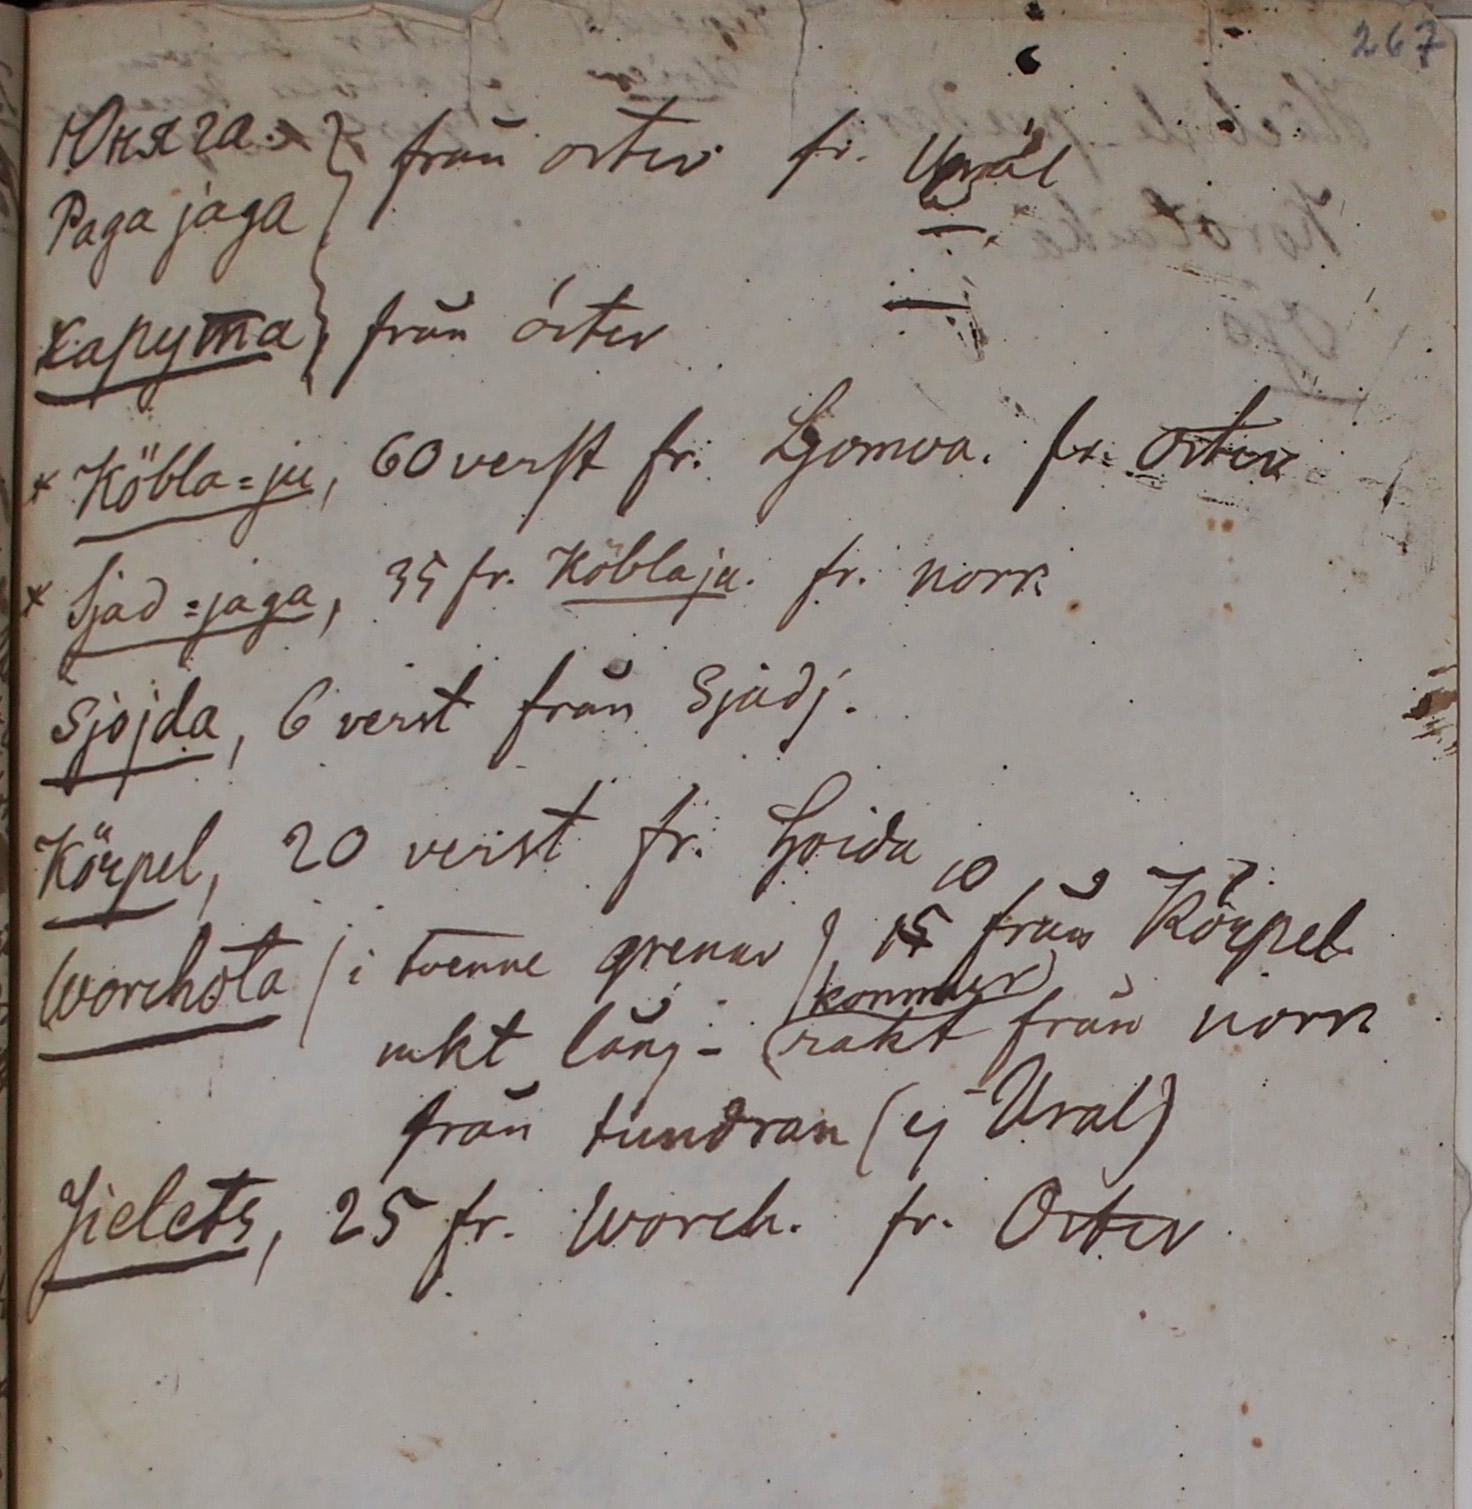 267
Юняга } från öster fr. Ural
Paga jaga
Харута } från öster
* Köbla=ju, 60 verst fr. Ljomva. fr. öster
* Sjad=jaga, 35 fr. Köblaju. fr. norr
Sjojda, 6 verst från Sjadj.
Körpel, 20 verst fr. Sjoida
10
Worchota (i tvenne grenar) 15 från Körpel
kommer
mkt lång - (rakt från norr
från tundran (ej Ural)
Jielets, 25 fr. Worch. fr. Öster